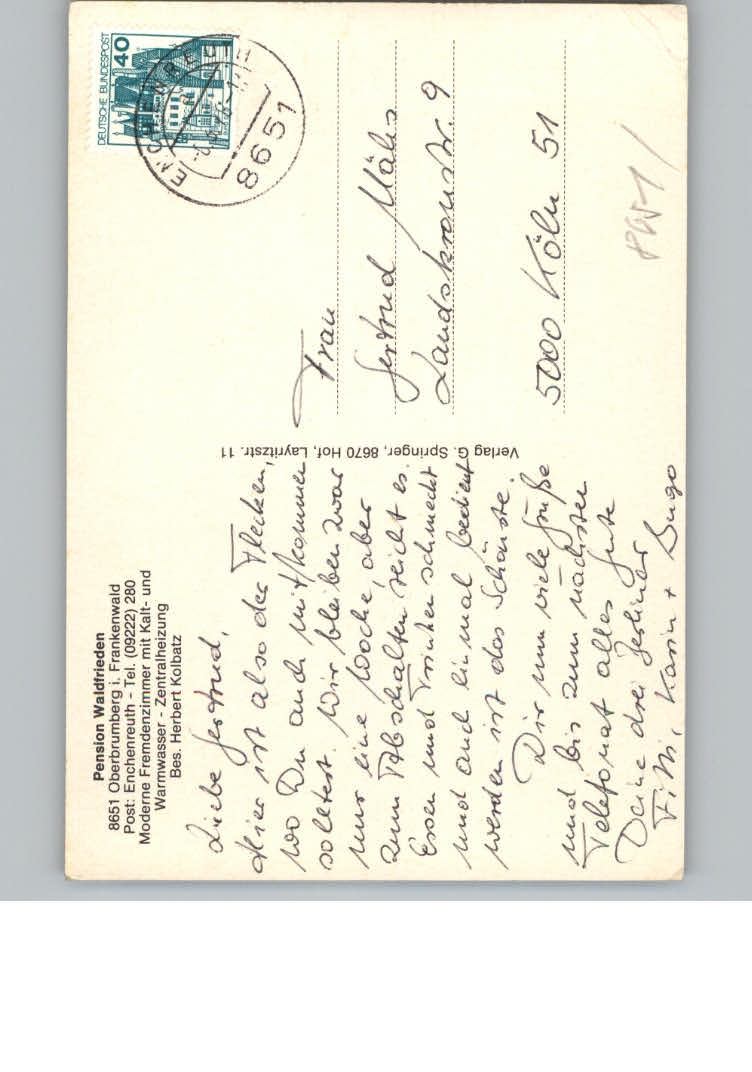 Pension Waldfrieden
8651 Oberbrumberg i. Frankenwald
Post: Enchenreuth - Tel. (09222) 280
Moderne Fremdenzimmer mit Kalt- und
Warmwasser - Zentralheizung
Bes. Herbert Kolbatz
Liebe Gertrud,
hier ist also der Flecken,
wo Du auch mitkommen
solltest. Wir bleiben zwar
nur eine Woche, aber
zum Abschalten reicht es.
Essen und Trinken schmeckt
und auch einmal bedient
werden ist das Schönste.
Dir nun viele Grüße
und bis zum nächsten
Telefonat alles Gute
Deine drei Berliner
Karin + Hugo
Verlag G. Springer, 8670 Hof, Layritzstr. 11
DEUTSCHE BUNDESPOST
40
ENCHENREUTH
8651
Frau
Gertrud
Landskronstr. 9
5000 Köln 51
8651